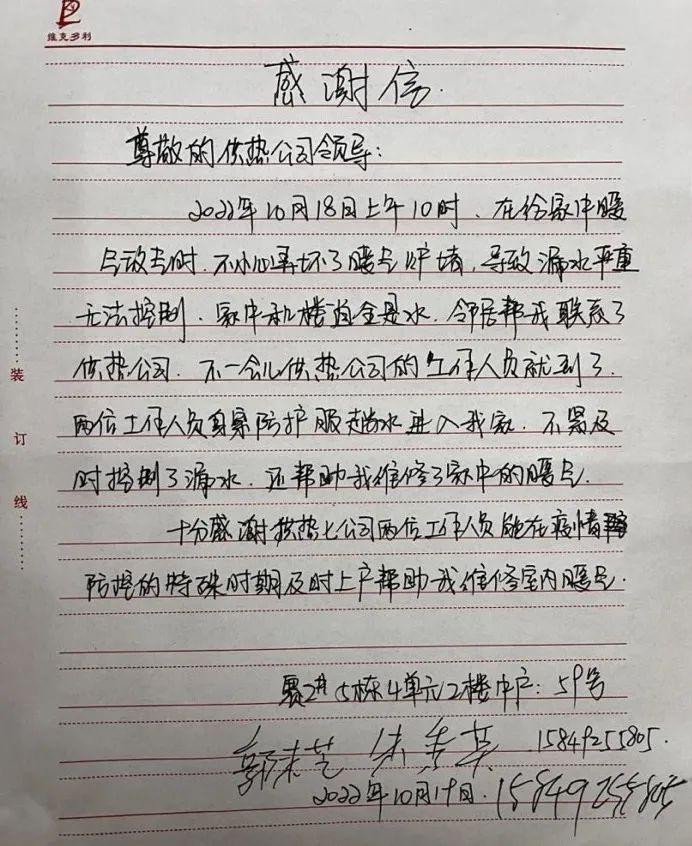 维克多利
感谢信
尊敬的供热公司领导:
2022年10月18日上午10时、在给家中暖
气放气时.不小心弄坏了暖气炉堵,导致漏水严重
无法控制.家中和楼道全是水.邻居帮我联系了
供热公司.不一会儿供热公司的工作人员就到了.
两位工作人员身穿防护服趟水进入我家.不署及
时控制了漏水.还帮助我维修了家中的暖气.
十分感谢供热七公司两位工作人员能在疫情
防控的特殊时期及时上户帮助我维修室内暖气.
5栋4单元2楼中户:59号
15849255805.
2022年10月19日.15849255805
装
订
线